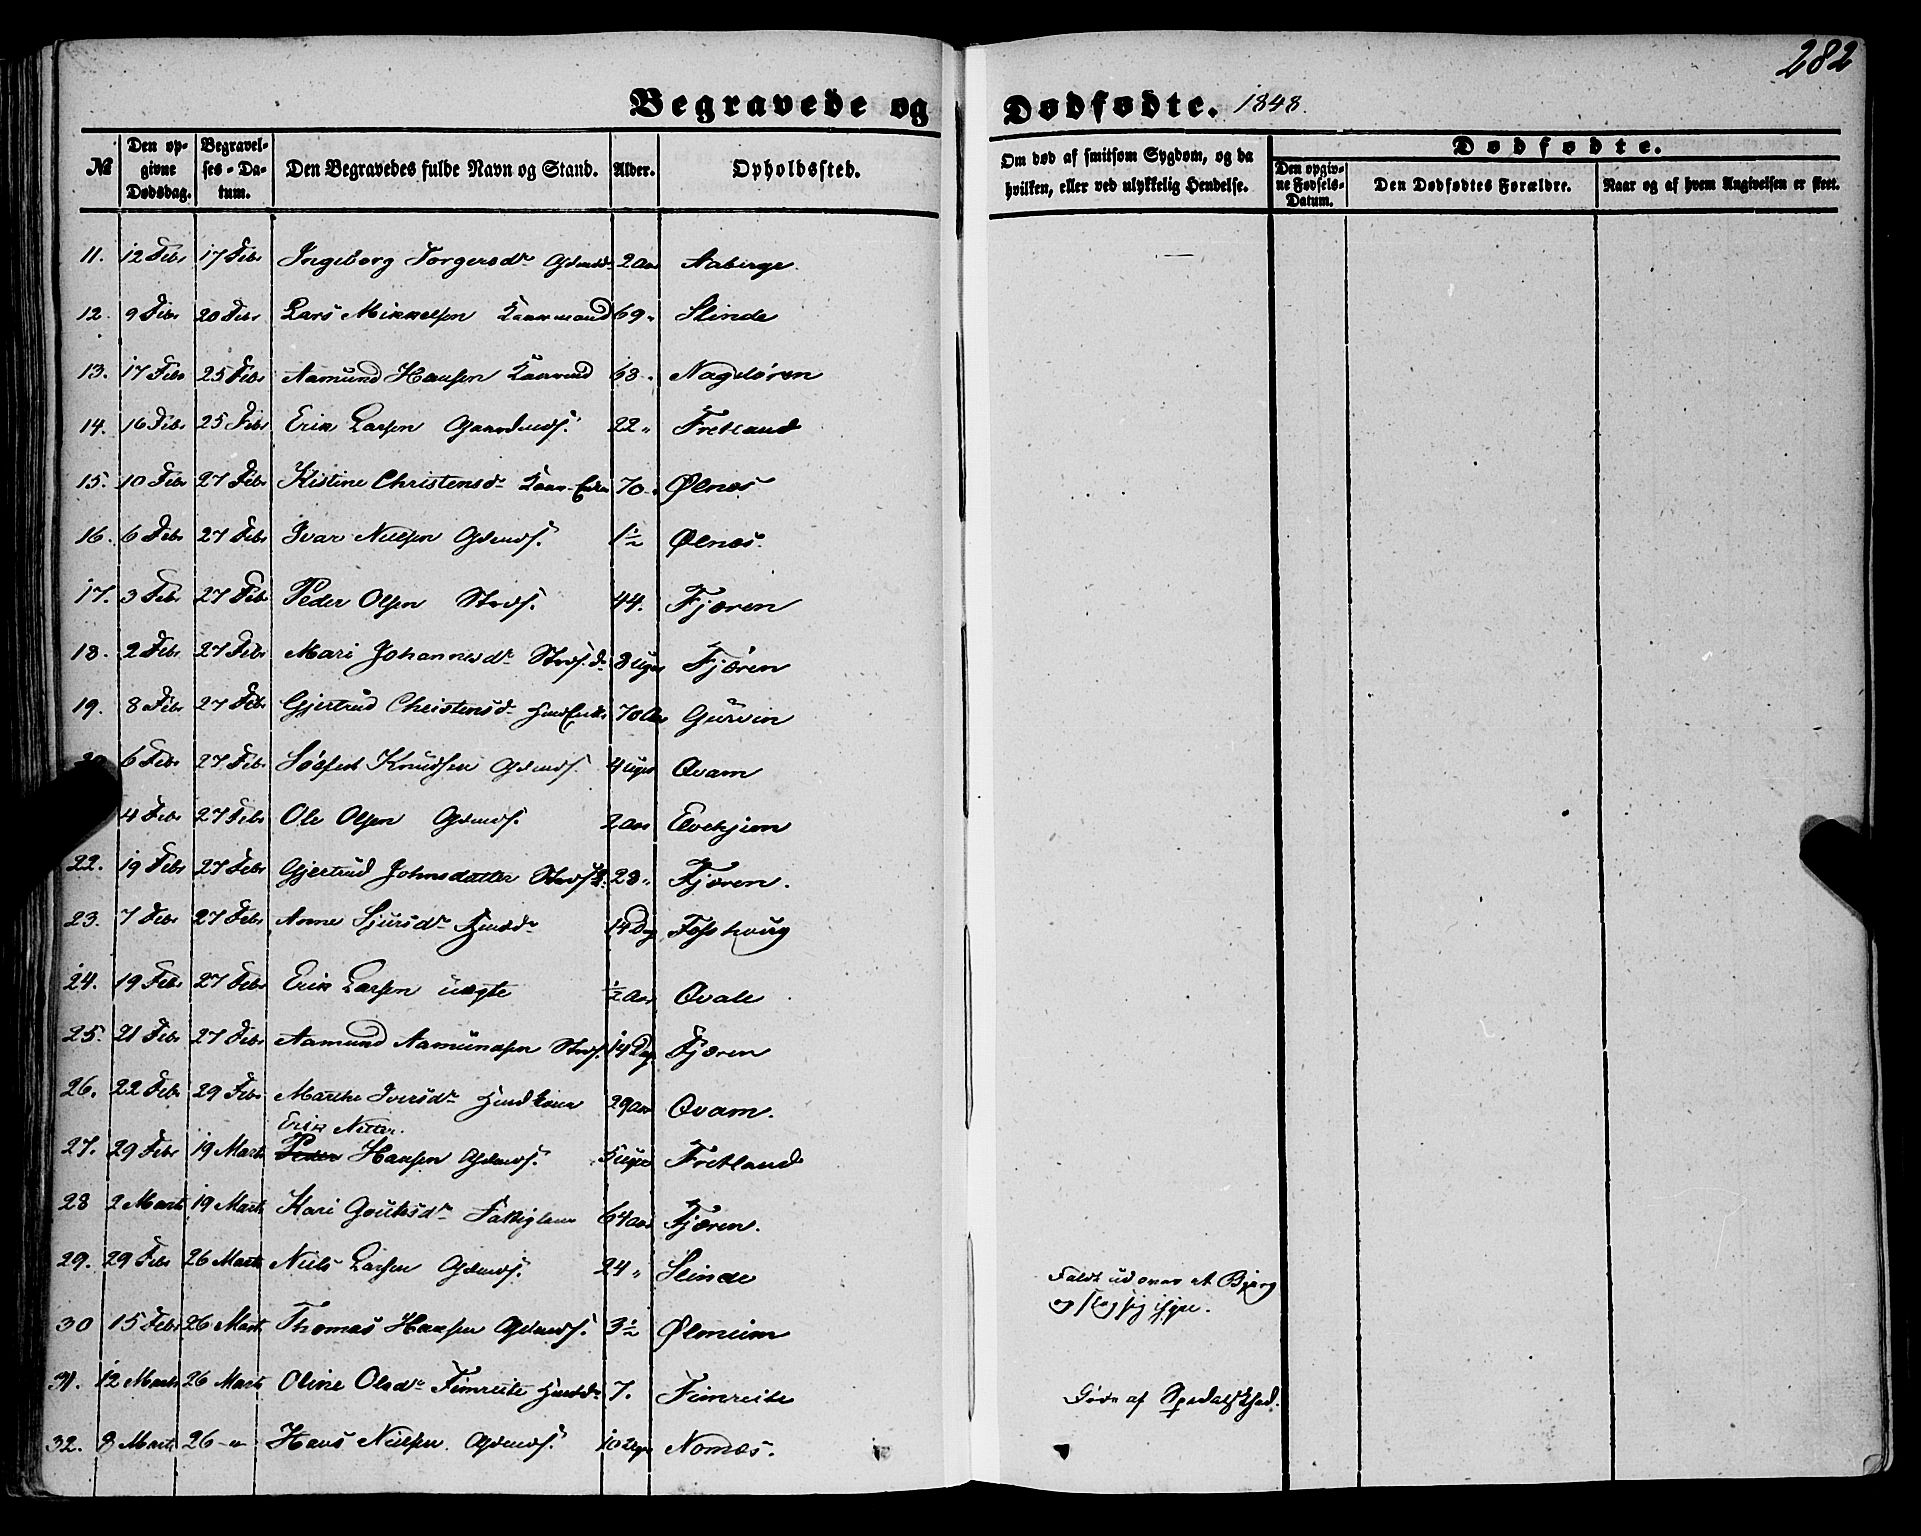 282
Begravede og Dødfødte. 1848.
№ Den opgivne Dødsdag. Begravelses-Datum. Den Begravedes fulde Navn og Stand. Alder. Opholdssted. Om død af smitsom Sygdom, og da hvilken, eller ved ulykkelig Hendelse. Dødfødte.
Den opgivne Fødsels-Datum. Den Dødfødtes Forældre. Naar og af hvem Angivelsen er skeet.
11. 12 Febr 17 Febr Ingeborg Torgersdr 2 Aar Aaberge. —
12. 9 Febr 20 Febr Lars Mikkelsen Kaarmand 69 " Slinde
13. 17 Febr 25 Febr Aamund Hansen 63 " Nagløren
14. 16 Febr 25 Febr Erik Larsen Gaardmds. 22 " Fretland
15. 10 Febr 27 Febr Kistine Christensdr 70 " Ølnæs
16. 6 Febr 27 Febr Ivar Nielsen Gdmds. 1½ Ølnæs.
17. 3 Febr 27 Febr Peder Olsen Strds. 44. Fjæren
18. 2 Febr 27 Febr Mari Johannesdr 3 Uger Fjæren
19. 8 Febr 27 Febr Gjertrud Christensdr 70 Aar Gurvin
6 Febr 27 Febr Sølfest Knudsen Gdmds. 4 Uger Qvam
4 Febr 27 Febr Ole Olsen Gdmds. 2 Aar Elvekjem
22. 19 Febr 27 Febr Gjertrud Johnsdatter 28 " Fjæren.
23. 7 Febr 27 Febr Anne Sjursdr 14 Dag Fosshaug
24. 19 Febr 27 Febr Erik Larsen uægte ½ Aar Qvale
25. 21 Febr 27 Febr Aamund Aamundsen Strds. 14 Dag Fjæren
26. 22 Febr 29 Febr Marthe Iversdr Hmdkone 29 Aar Qvam.
Erik Netter.
27. 29 Febr 19 Marts Peder Hansen Gdmds. 5 Uger Fretland
28 2 Marts 19 Marts Kari Goutesdr Fattiglem 64 Aar Fjæren.
29. 29 Febr 26 Marts Niels Larsen Gdmds. 24 " Slinde Faldt ud over et Bjerg
og slog sig ihjel.
30 15 Febr 26 Marts Thomas Hansen Gdmds. 3½ Ølmeim
31. 12 Marts 26 Marts Oline Olsdr Fimreite 7. Fimreite Døde af Spedalskhed.
32. 8 Marts 26 - " - Hans Nielsen. Gdmds. 10 Uger Nornæs.